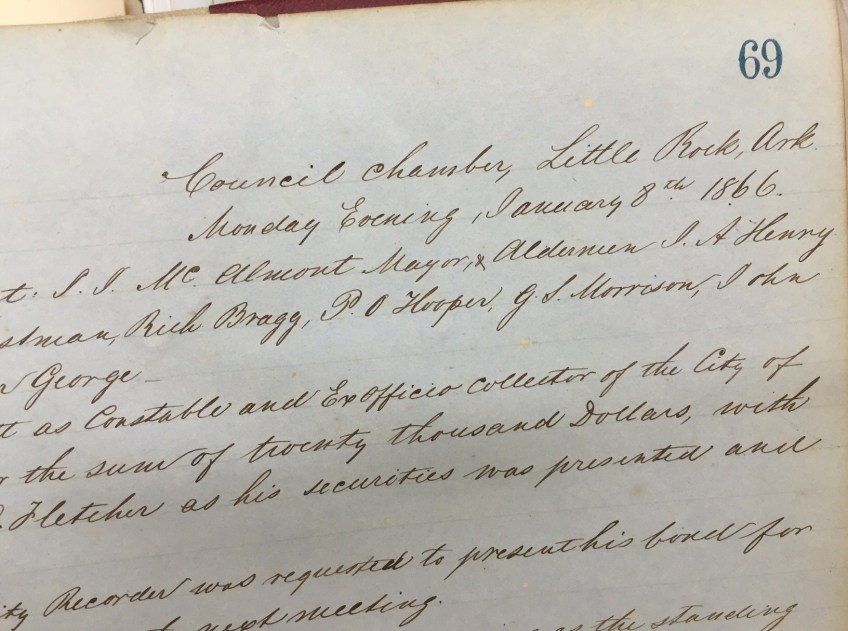 69
Council Chamber, Little Rock, Ark.
Monday Evening, January 8th 1866.
t. J. J. Mc. Almont Mayor, & Aldermen J. A Henry
stman, Rich Bragg, P. O Hooper, G. S. Morrison, John
George
t as Constable and Ex Officio Collector of the City of
the sum of twenty thousand Dollars, with
Fletcher as his securities was presented and
ity Recorder was requested to present his bond for
next meeting.
as the standing